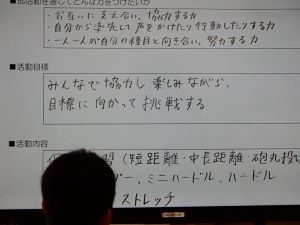 ■部活動を通してどんな力をつけたいか
・お互いに支え合い、協力する力
・自分から率先して声をかけたり行動したりする力
・一人一人が自分の種目と向き合い、努力する力
■活動目標
みんなで協力し楽しみながら、
目標に向かって挑戦する
■活動内容
習(短距離・中長距離・砲丸投げ
ミニハードル、ハードル
ストレッチ